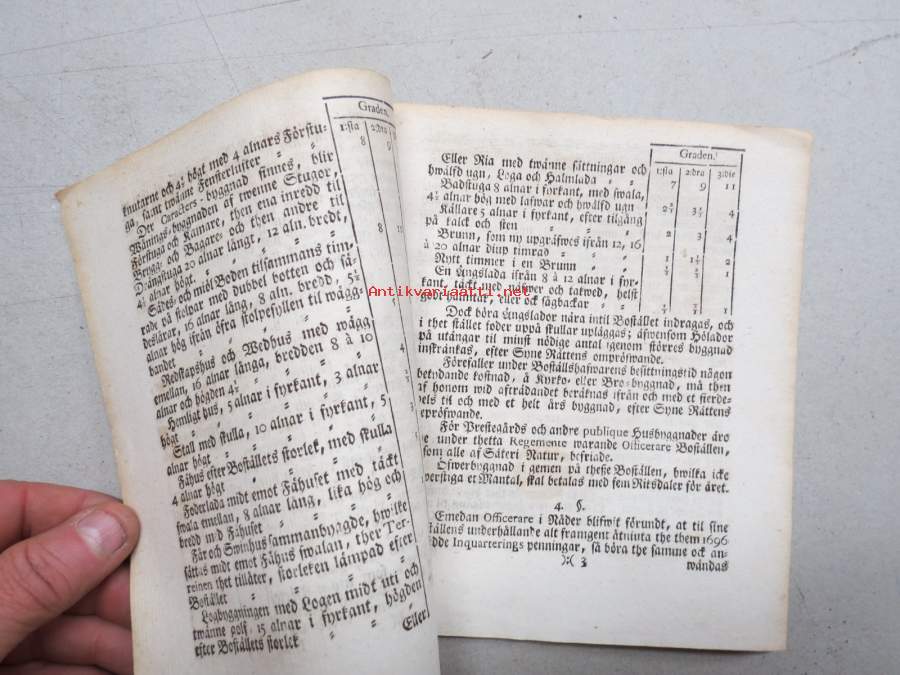 Graden.
1:sta 2:dra
knutarne och 4½ högt med 4 alnars Förstu-
ga, samt twänne Fensterluster 8 9
Der Caracters-byggnad finnes, blir
Wånings-byggnaden af twenne Stugor,
Förstuga och Kamare, then ena inredd til
Brygg- och Bagare- och then andre til
Drängstuga 20 alnar långt, 12 aln. bredt,
4½ alnar högt. 8
Sädes- och miöl Boden tilsammans tim-
rade på stolpar med dubbel botten och få-
deslårar, 16 alnar lång, 8 aln. bredd, 5½
alnar hög ifrån öfra stolpefyllen til wägg-
bandet
Redskapshus och Wedhus med wägg
emellan, 16 alnar långa, bredden 8 à 10
alnar och högden 4½ 4
Hemligt hus, 5 alnar i fyrkant, 3 alnar
högt
Stall med skulla, 10 alnar i fyrkant, 5
alnar högt
Fähus efter Boställets storlek, med skulla
4 alnar högt
Foderlada midt emot Fähuset med täckt
swala emellan, 8 alnar lång, lika hög och
bredd med Fähuset
Får och Swinhus sammanbygde, hwilke
sättas midt emot Fähus swalan, ther Ter-
reinen thet tillåter, storleken lämpad efter
Bostället
Logbyggningen med Logen midt uti och
twänne golf 15 alnar i fyrkant, högden
efter Boställets storlek
Eller
Graden.
1:sta 2:dra 3:die
Eller Ria med twänne sättningar och
hwälfd ugn, Loga och Halmlada 7 9 11
Badstuga 8 alnar i fyrkant, med swala,
4½ alnar hög med lafwar och hwälfd ugn 4
Källare 5 alnar i fyrkant, efter tilgång
på kalck och sten 2 3 4
Brunn, som ny upgräfwes ifrån 12, 16
à 20 alnar diup timrad 2
Nytt timmer i en Brunn 1
En Ängslada ifrån 8 à 12 alnar i fyr-
kant, täckt med näfwer och takwed, helst
gode halmtak, eller ock sågbackar 1
Dock böra Ängslador nära intil Bostället indragas, och
i thet stället foder uppå skullar upläggas; äfwensom Hölador
på utängar til minst nödige antal igenom störres byggnad
inskränkas, efter Syne Rättens ompröfwande.
Förefaller under Boställshafwarens besittningstid någon
betydande kostnad, å Kyrko- eller Bro-byggnad, må then
af honom wid afträdandet beräknas ifrån och med et fierde-
dels til och med et helt års byggnad, efter Syne Rättens
bepröfwande.
För Prestegårds och andre publique Husbyggnader äro
under thetta Regemente warande Officerare Boställen,
som alle af Säteri Natur, befriade.
Öfwerbyggnad i gemen på theße Boställen, hwilka icke
öfwerstiga et Mantal, skal betalas med fem Ritsdaler för året.
4. §.
Emedan Officerare i Nåder blifwit förundt, at til sine
Boställens underhållande alt framgent åtniuta the them 1696
Inquarterings penningar, så böra the samme ock an-
):( 3 wändas
Antikvariaatti.net